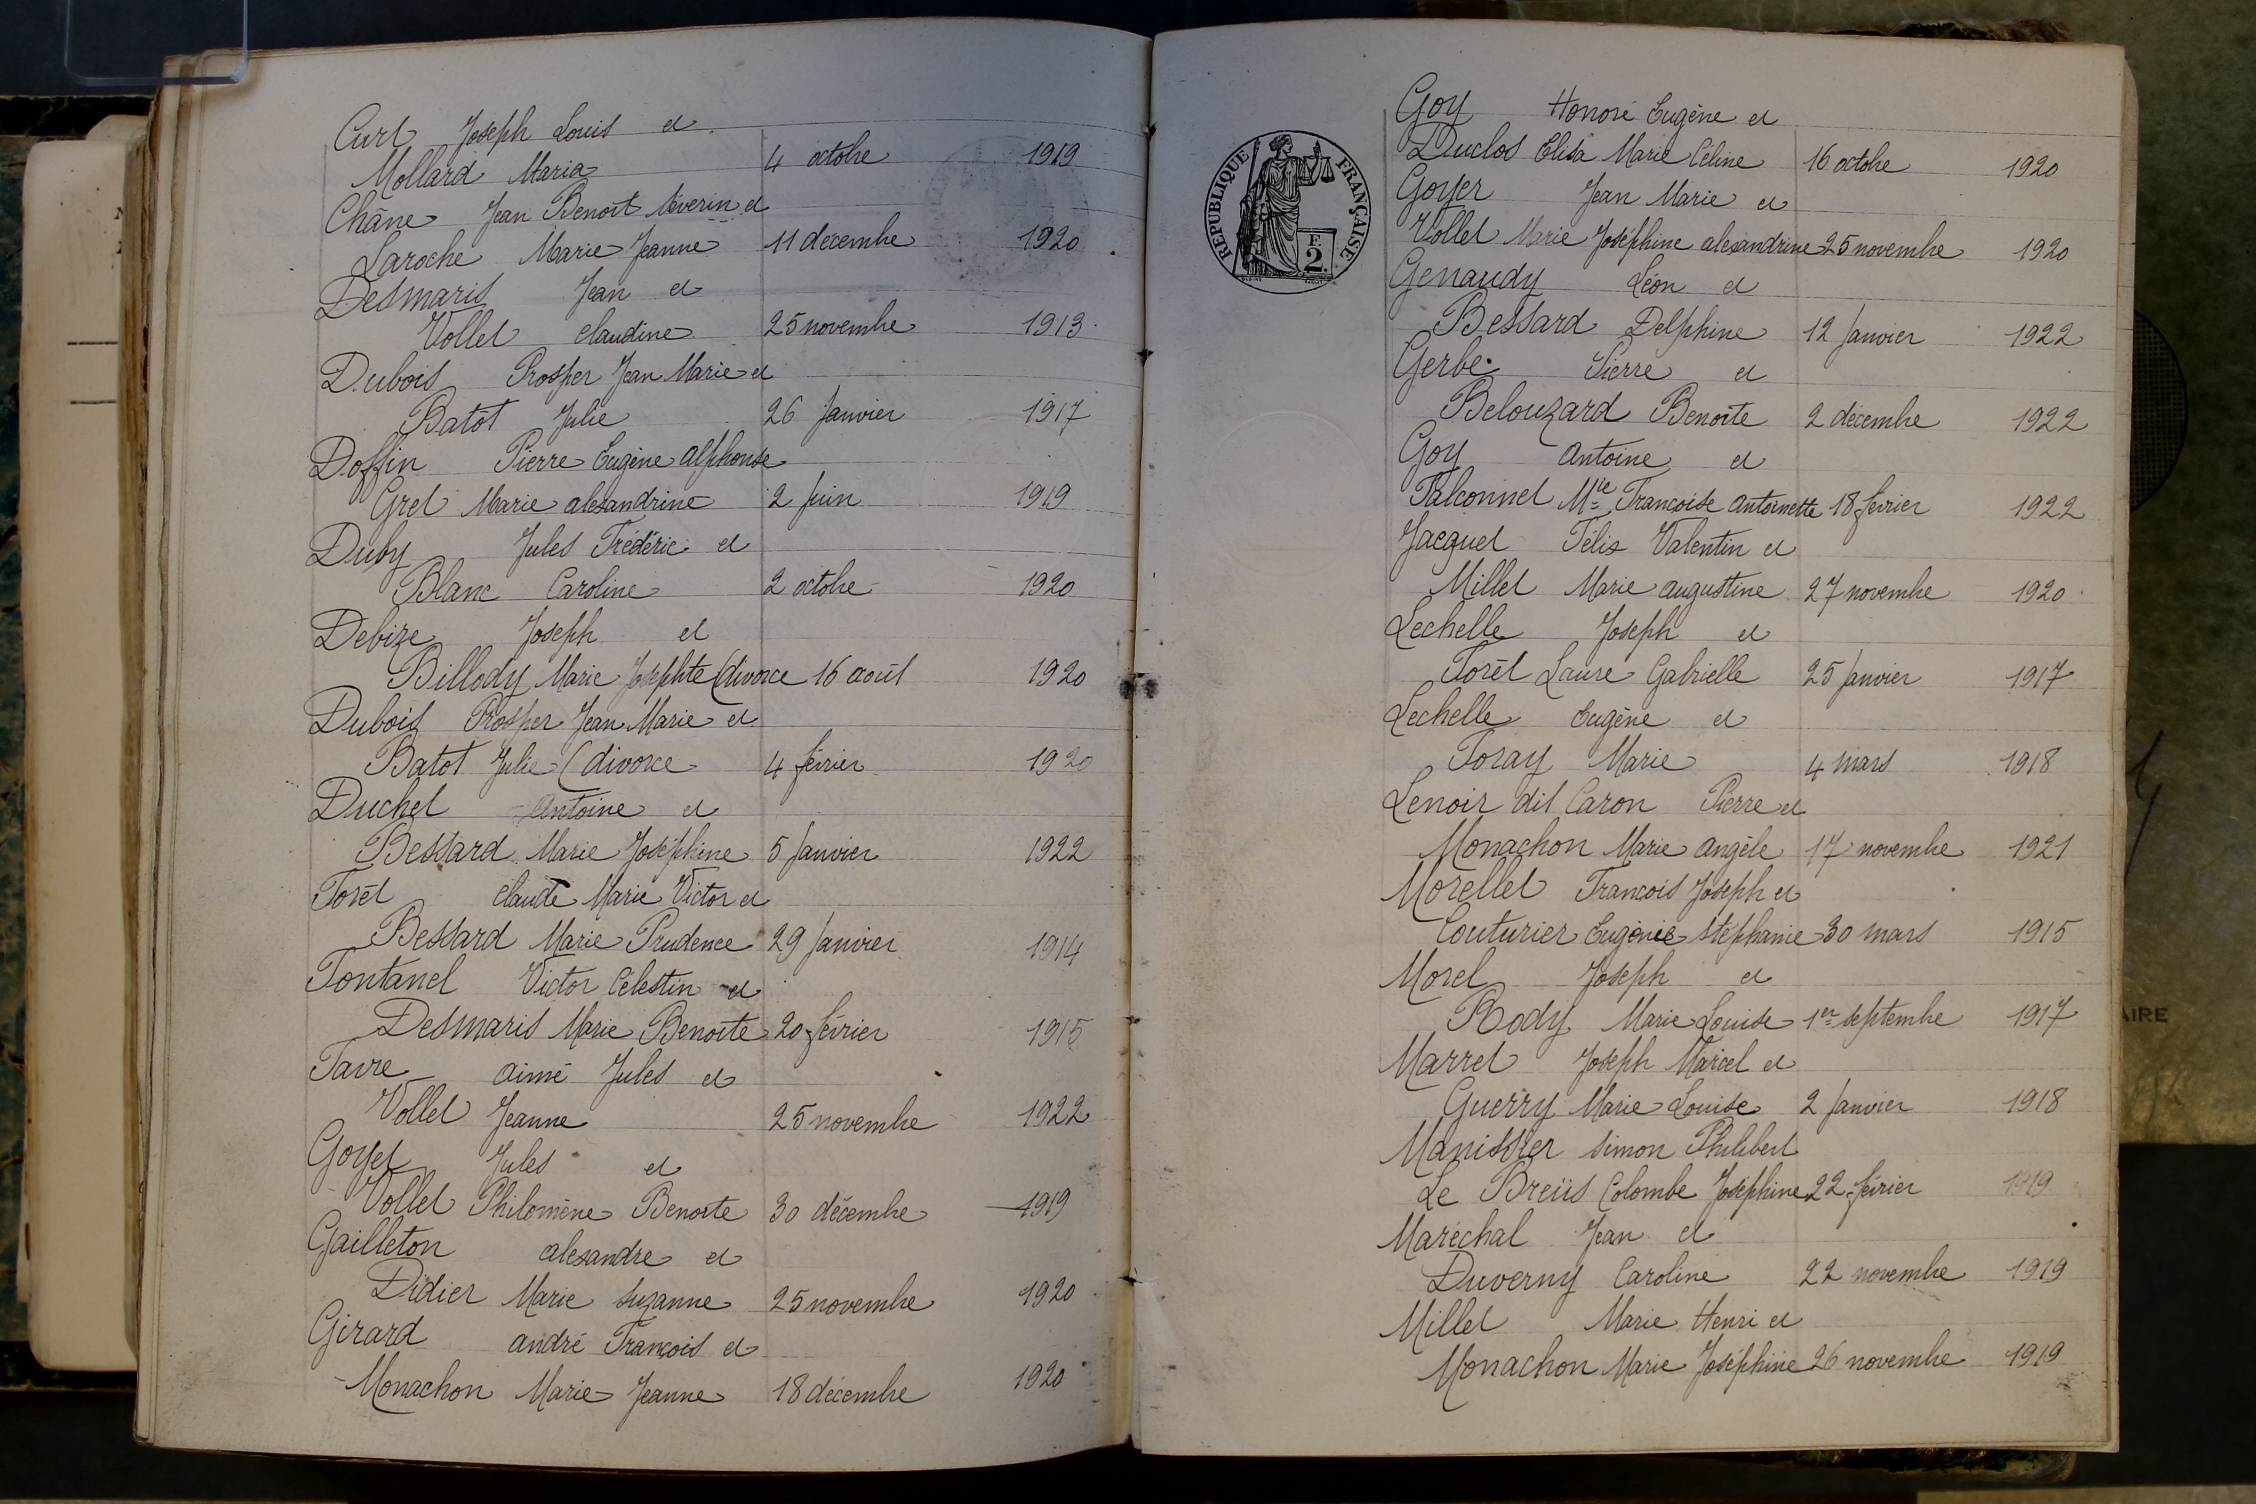 Curt Joseph Louis et
Mollard Maria 4 octobre 1919
Châne Jean Benoît Séverin et
Laroche Marie Jeanne 11 décembre 1920
Desmaris Jean et
Vollet claudine 25 novembre 1913
Dubois Prosper Jean Marie et
Batôt Julie 26 Janvier 1917
Doffin Pierre Eugène Alphonse
Gret Marie alexandrine 2 Juin 1919
Duby Jules Frédéric et
Blanc Caroline 2 octobre 1920
Debize Joseph et
Billody Marie Josephte (divorce 16 août 1920
Dubois Prosper Jean Marie et
Batot Julie (divorce 4 février 1920
Duchet Antoine et
Bessard Marie Joséphine 5 Janvier 1922
Forêt claude Marie Victor et
Bessard Marie Prudence 29 Janvier 1914
Fontanel Victor Célestin et
Desmaris Marie Benoîte 20 février 1915
Favre aimé Jules et
Vollet Jeanne 25 novembre 1922
Goyet Jules et
Vollet Philomène Benoîte 30 décembre 1919
Gailleton alexandre et
Didier Marie Suzanne 25 novembre 1920
Girard andré François et
Monachon Marie Jeanne 18 décembre 1920
RÉPUBLIQUE FRANÇAISE
F.
2
Goy Honoré Eugène et
Duclos Elisa Marie Céline 16 octobre 1920
Goyer Jean Marie et
Vollet Marie Joséphine alexandrine 25 novembre 1920
Genaudy Léon et
Bessard Delphine 12 Janvier 1922
Gerbe Pierre et
Belouzard Benoîte 2 décembre 1922
Goy Antoine et
Falconnet Mie Françoise Antoinette 18 février 1922
Jacquet Félix Valentin et
Millet Marie augustine 27 novembre 1920
Lechelle Joseph et
Forêt Laure Gabrielle 25 Janvier 1917
Lechelle Eugène et
Foray Marie 4 mars 1918
Lenoir dit Caron Pierre et
Monachon Marie angèle 17 novembre 1921
Morellet François Joseph et
Couturier Eugénie stéphanie 30 mars 1915
Morel Joseph et
Rody Marie Louise 1er septembre 1917
Marret Joseph Marcel et
Guerry Marie Louise 2 Janvier 1918
Manissier Simon Philibert
Le Breüs Colombe Joséphine 22 février 1919
Maréchal Jean et
Duverny Caroline 22 novembre 1919
Millet Marie Henri et
Monachon Marie Joséphine 26 novembre 1919
AIRE